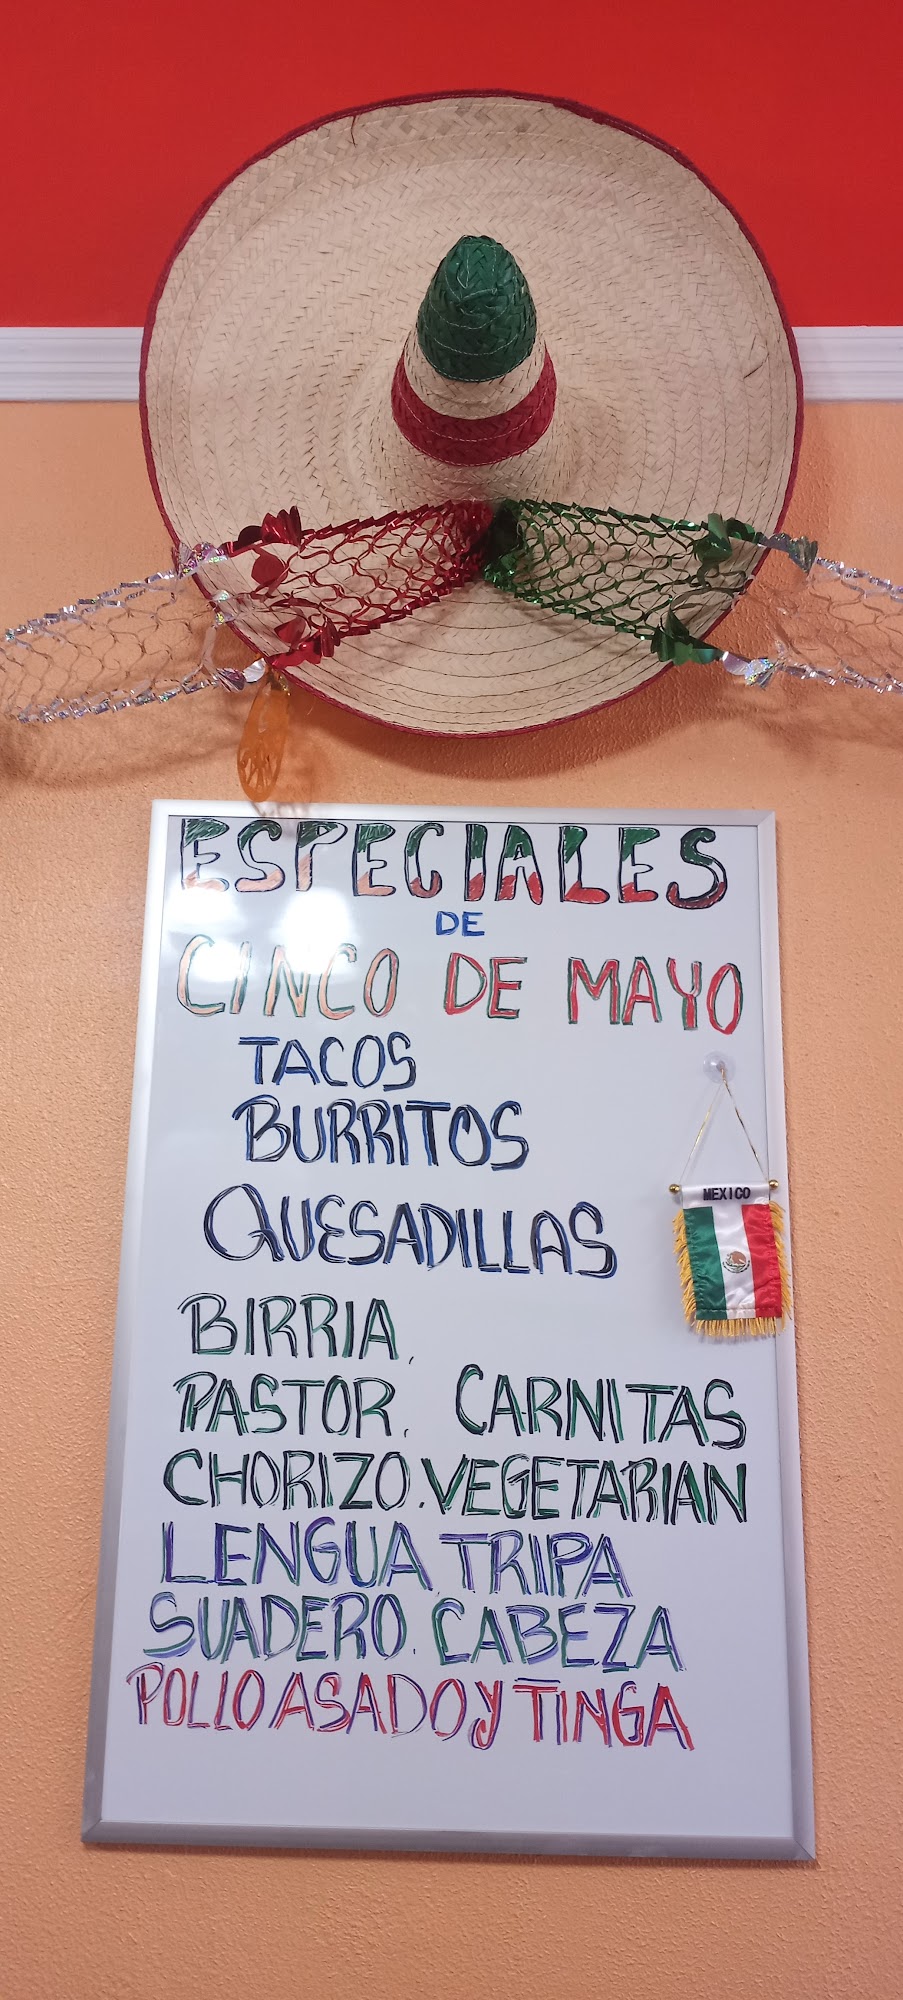 ESPECIALES
DE
CINCO DE MAYO
TACOS
BURRITOS
QUESADILLAS
MEXICO
BIRRIA,
PASTOR. CARNITAS
CHORIZO. VEGETARIAN
LENGUA, TRIPA
SUADERO. CABEZA
POLLO ASADO Y TINGA